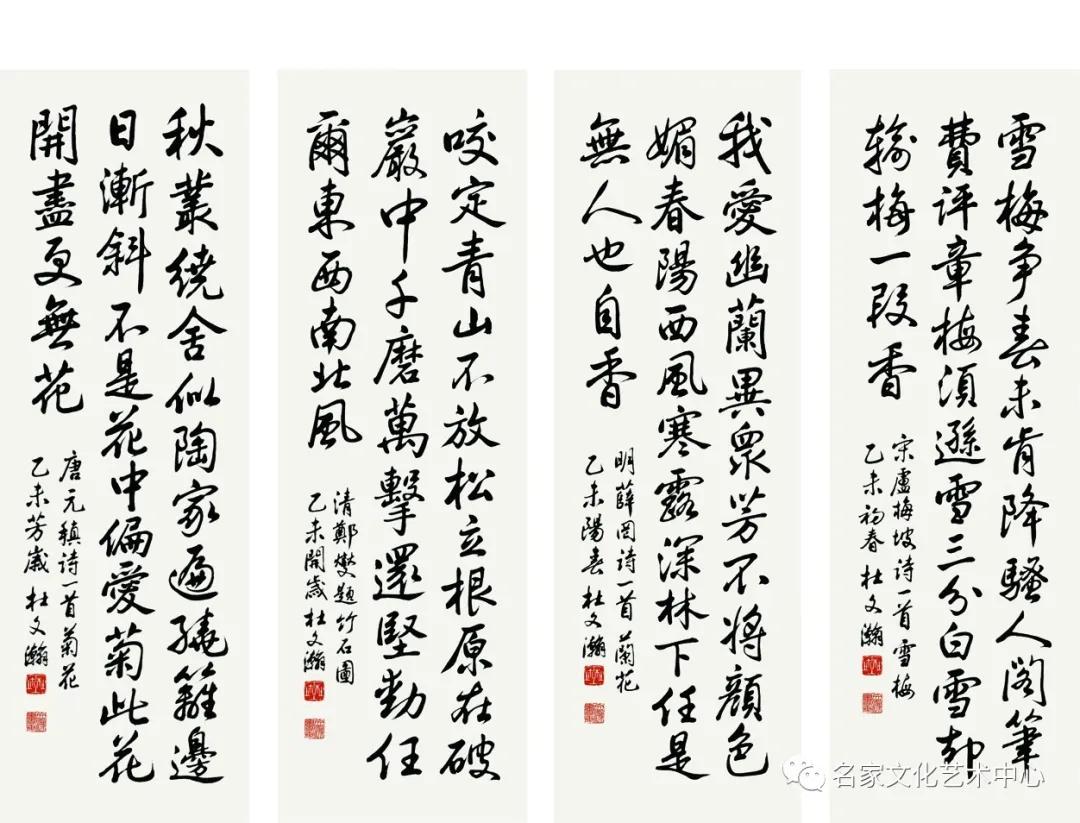 雪梅争春未肯降騷人閣筆
費評章梅須遜雪三分白雪却
輸梅一段香
宋盧梅坡詩一首雪梅
乙未初春杜文瀚
我愛幽蘭異衆芳不將顔色
媚春陽西風寒露深林下任是
無人也自香
明薛网詩一首蘭花
乙未陽春杜文瀚
咬定青山不放松立根原在破
巖中千磨萬擊還堅勁任
爾東西南北風
清鄭燮題竹石圖
乙未開歲杜文瀚
秋叢繞舍似陶家遍繞籬邊
日漸斜不是花中偏愛菊此花
開盡更無花
唐元稹詩一首菊花
乙未芳歲杜文瀚
名家文化艺术中心